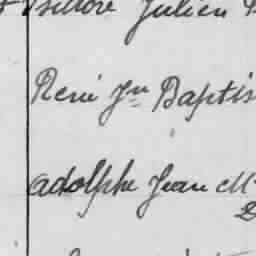 Isidore Julien
René Jn Baptis
Adolphe Jean M